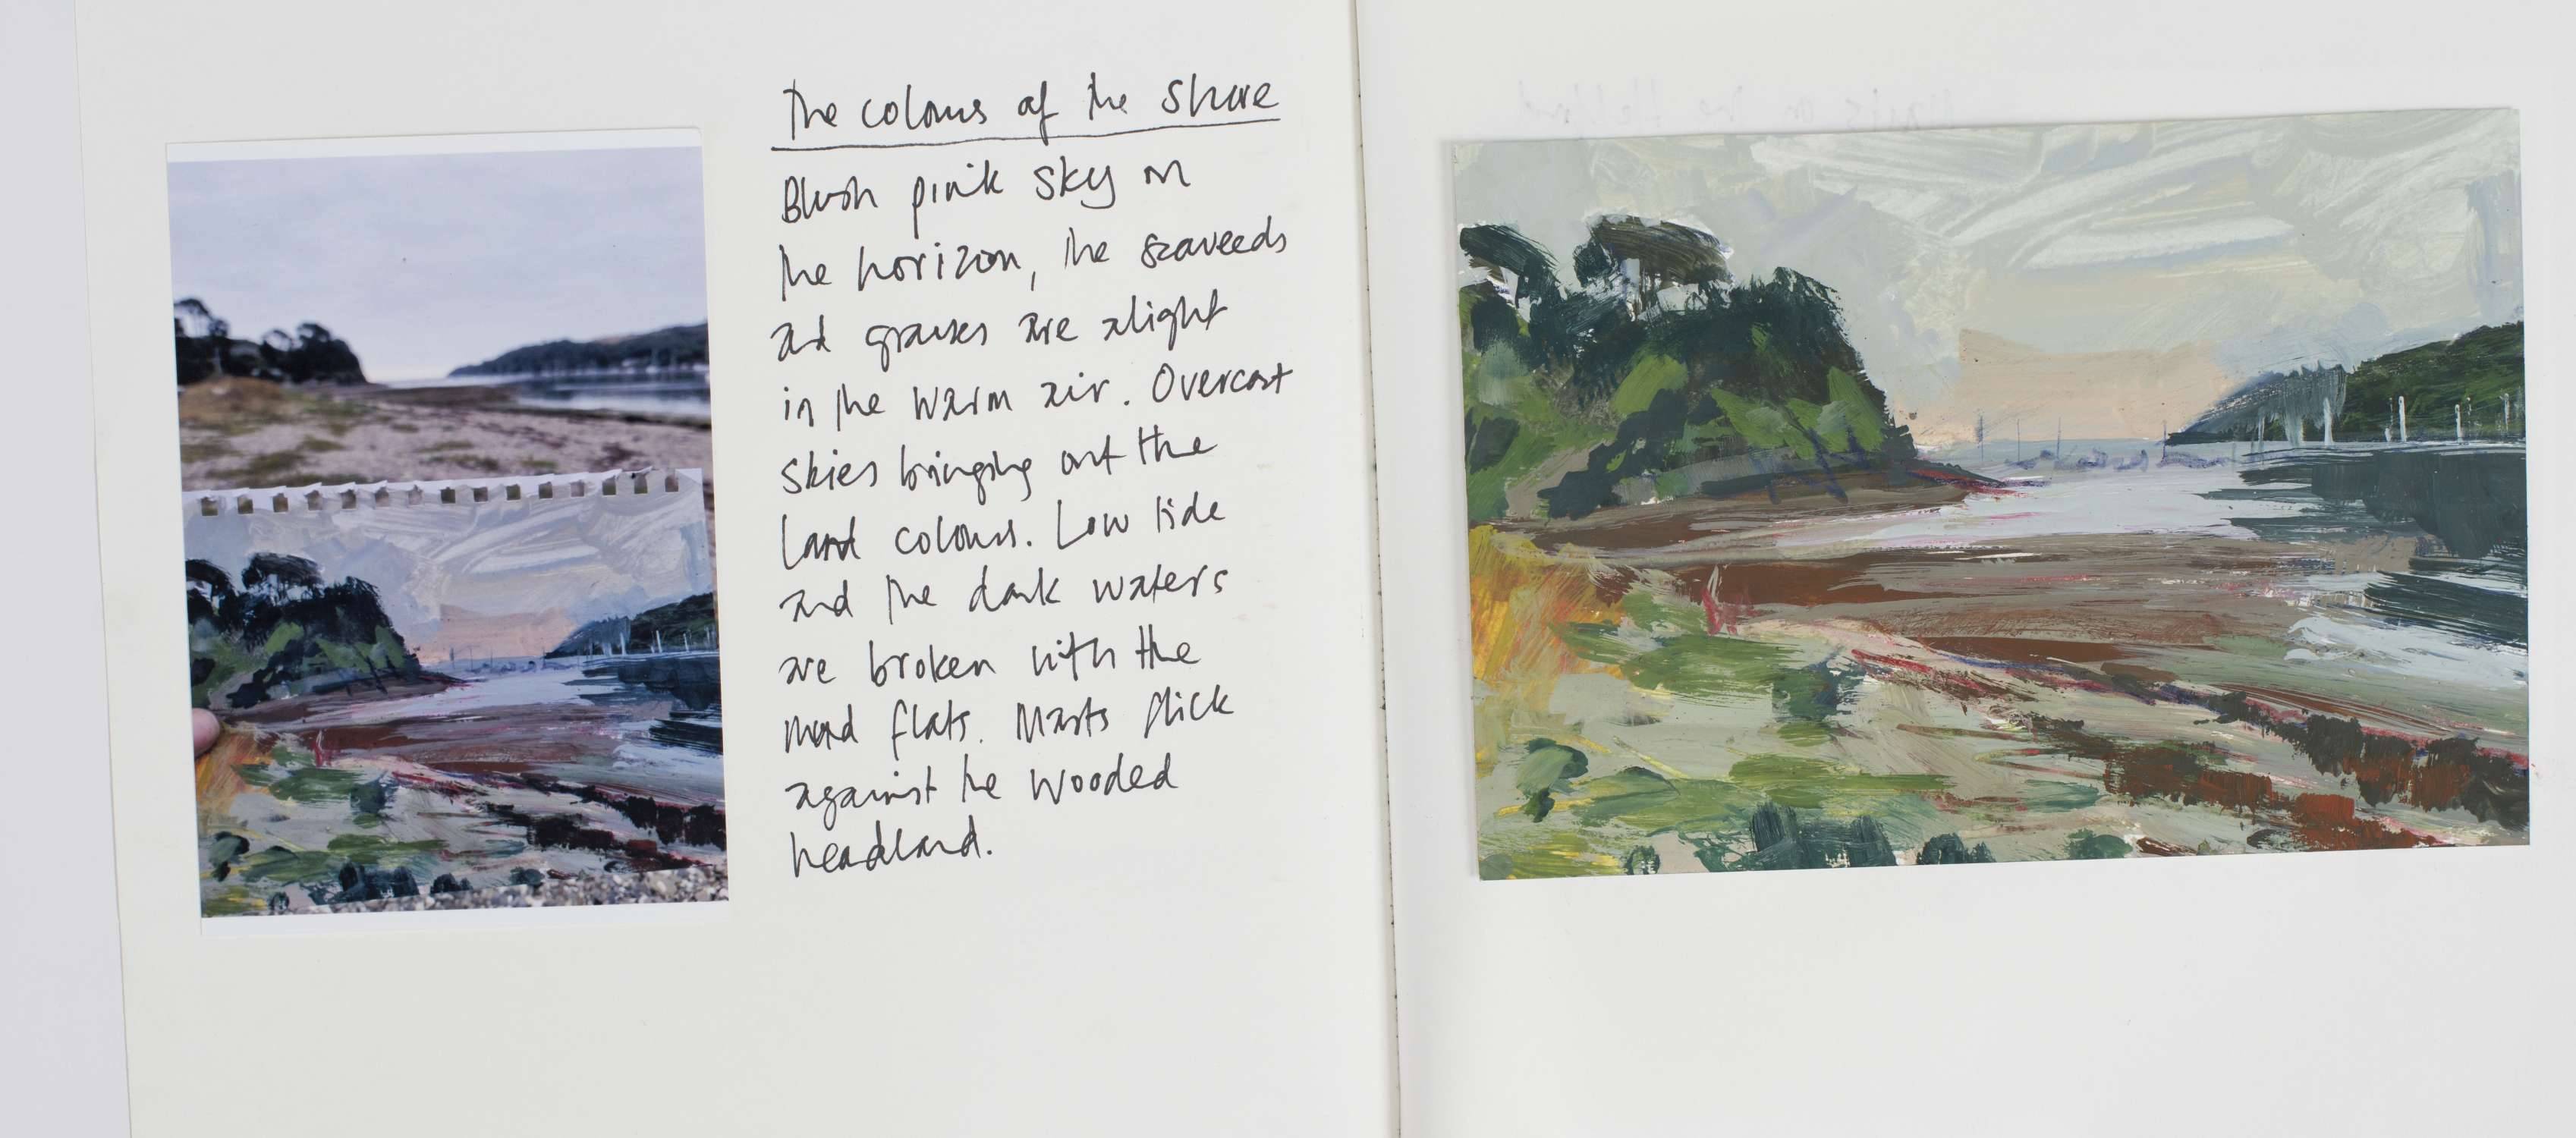 The colours of the shore
Blush pink sky on
the horizon, the seaweeds
and grasses are alight
in the warm air. Overcast
skies bringing out the
land colours. Low tide
and the dark waters
are broken with the
mud flats. Masts flick
against the wooded
headland.